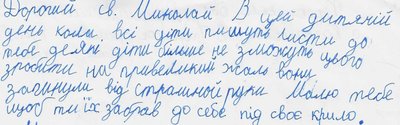 Дорогий св. Миколай В цей дитячій
день коли всі діти пишуть листи до
тебе деякі діти більше не зможуть цього
зробити на превеликий жаль вони
загинули від страшной руки Малю тебе
щоб ти їх забрав до себе під своє крило.